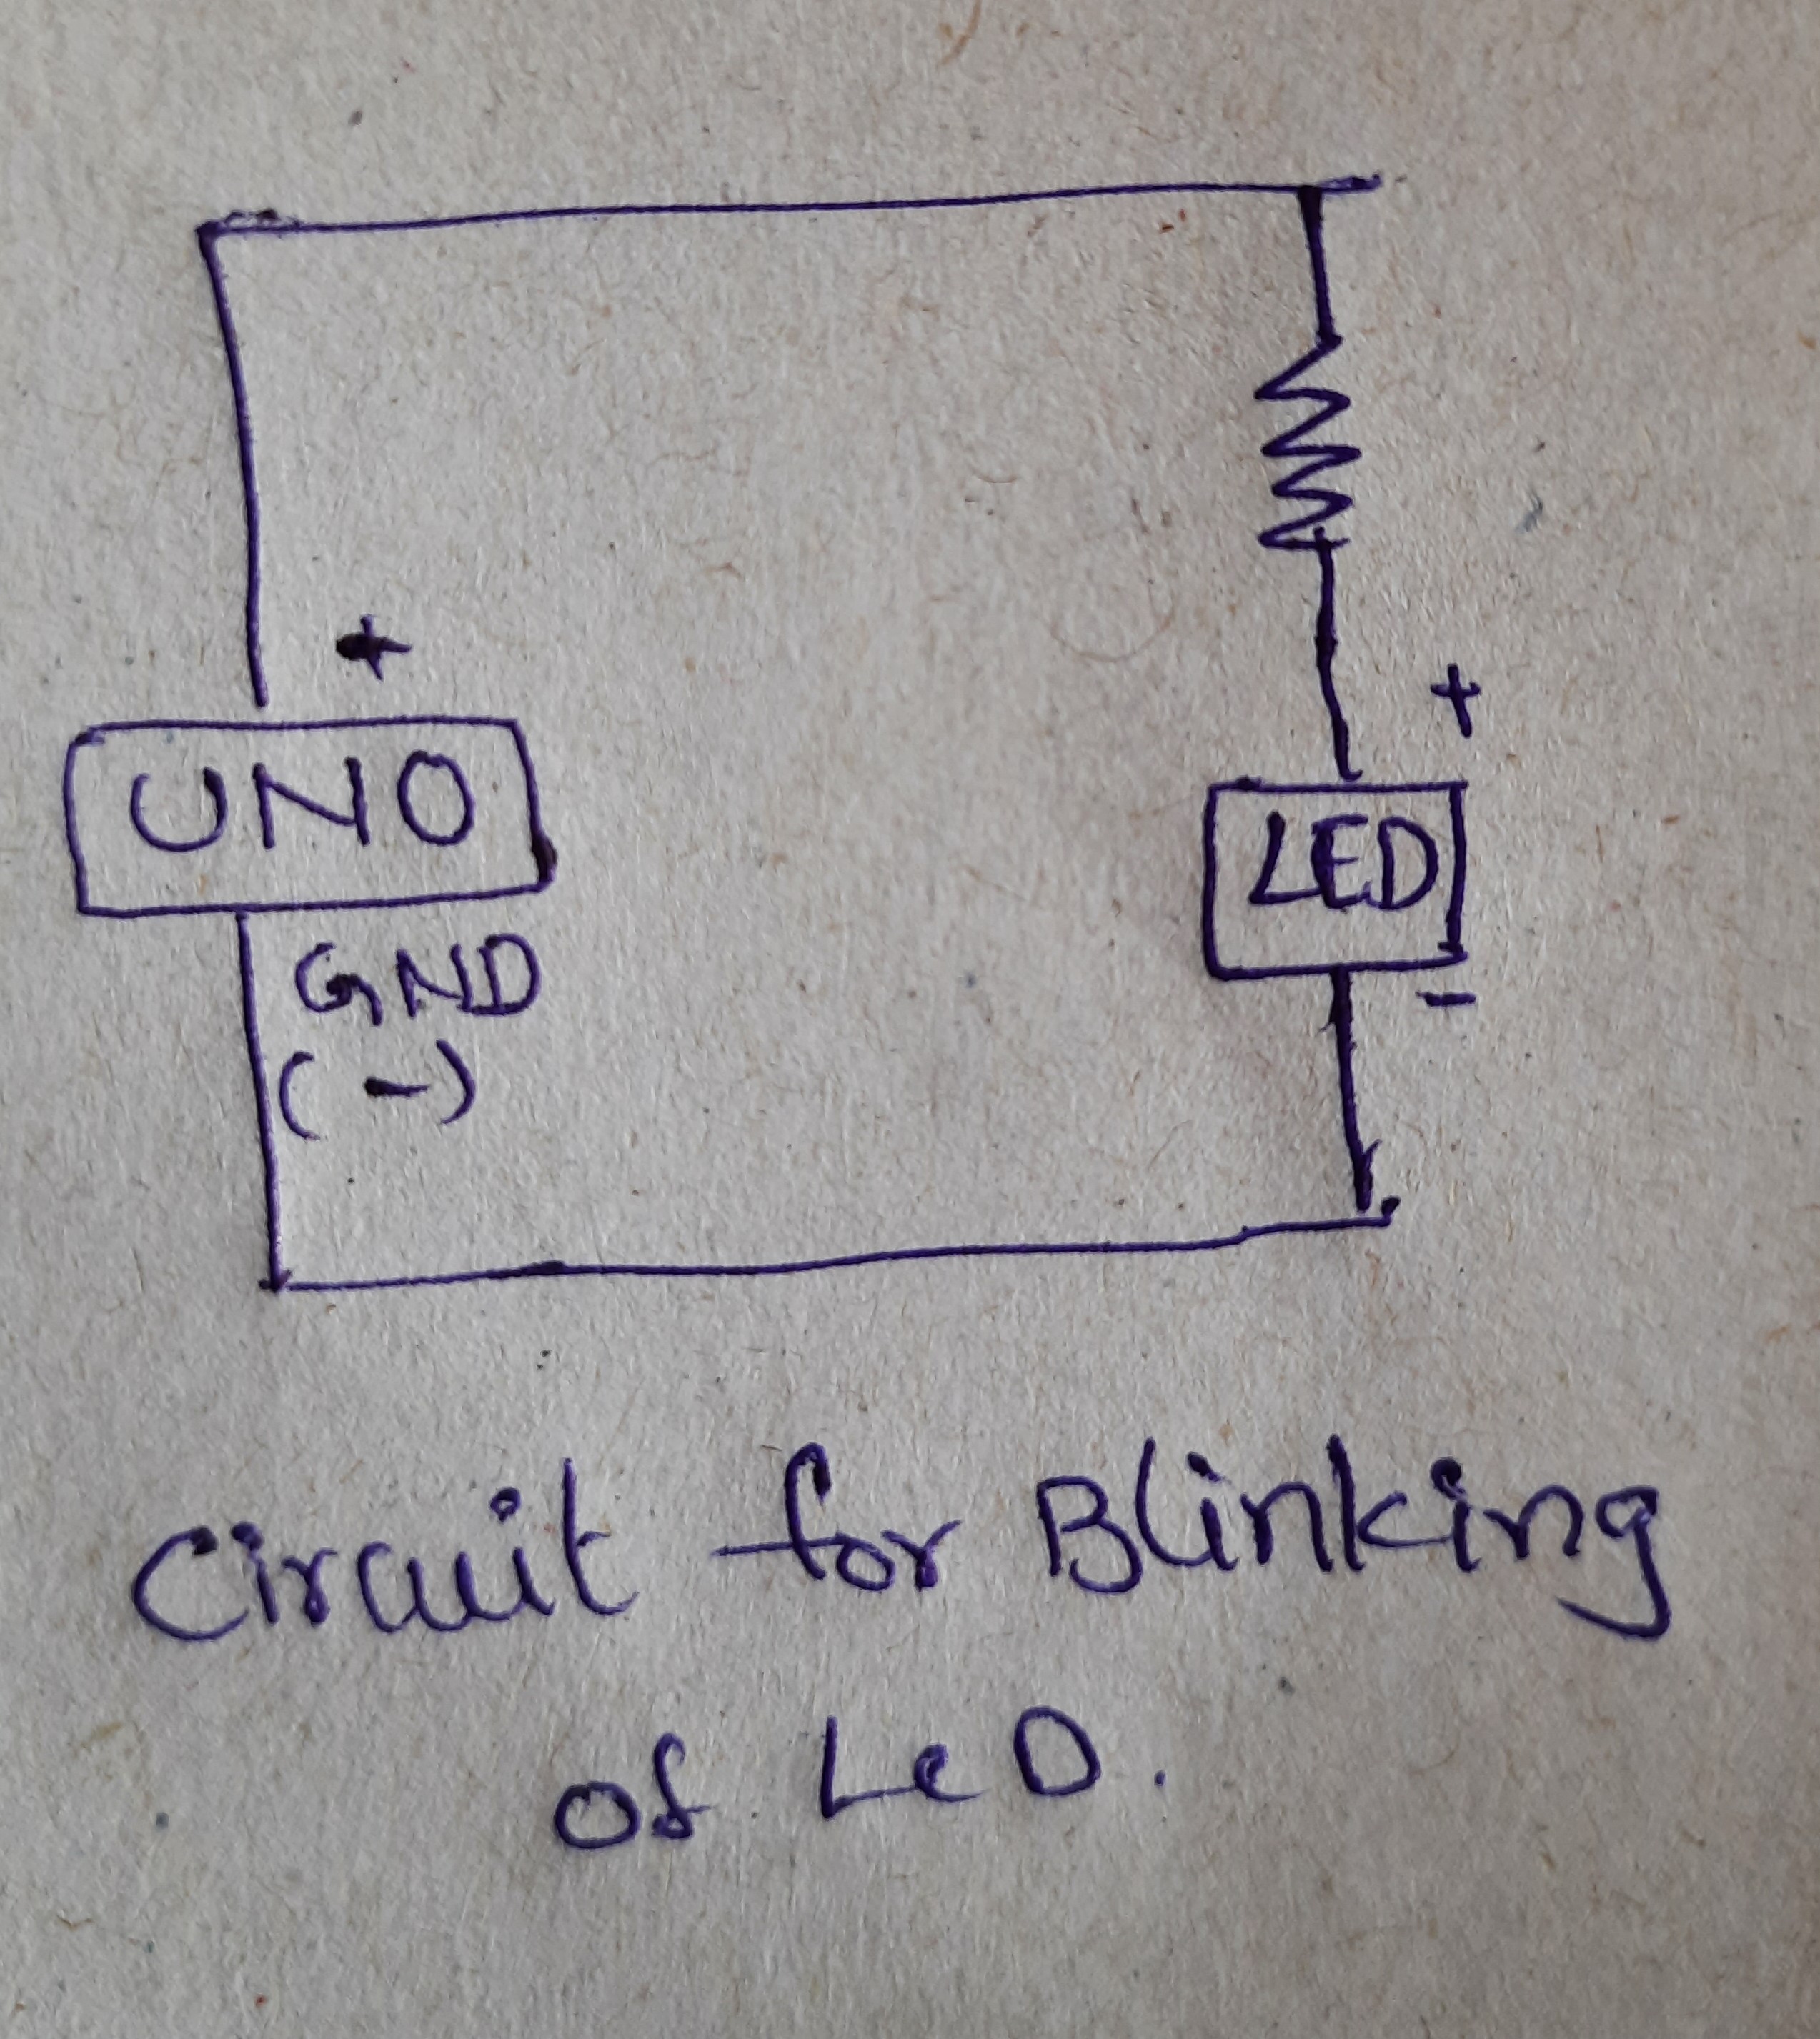 +
UNO
GND
(-)
+
LED
-
Circuit for Blinking
of LeD.